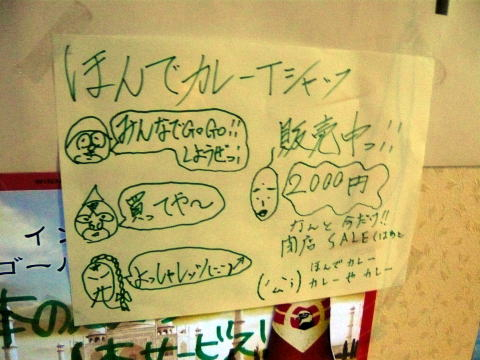 ほんでカレーTシャツ
みんなでGoGo!!
しようぜっ!
販売中っ!!
買ってや〜
2000円
なんと今だけ!!
閉店SALE(はあと
よっしゃレッツ
ほんでカレー
カレーやカレー
イン
ゴール
本の
サービス!